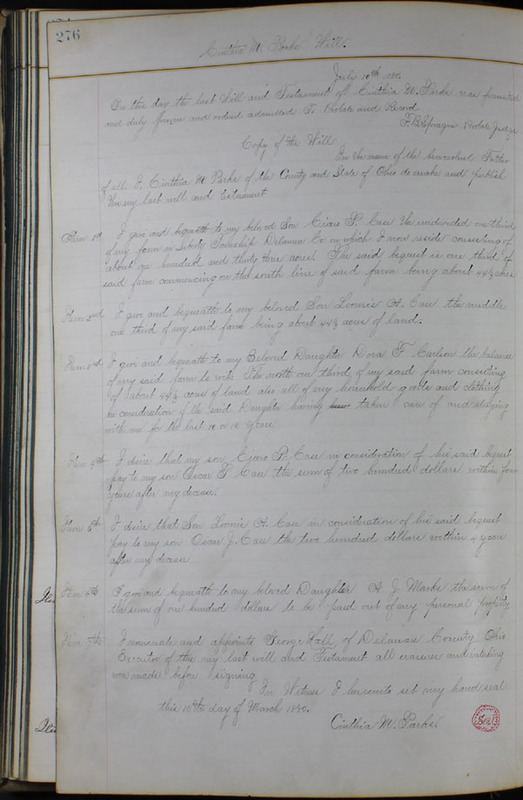 276
Cinthia M. Parks Will.
July 10th 1880.
On this day the last Will and Testament of Cinthia M. Parks was presented
and duly proven and ordered admitted to Probate and Record
F. B. Sprague Probate Judge
Copy of the Will
In the name of the benevolent Father
of all I, Cinthia M Parks of the County and State of Ohio do make and publish
this my last will and testament
Item 1st I give and bequeath to my beloved Son Cicero P. Case the undivided one third
of my farm in Liberty Township Delaware Co on which I now reside consisting of
about one hundred and thirty three acres. The said bequest is one third of
said farm commencing on the south line of said farm being about 44⅓ acres
Item 2nd I give and bequeath to my beloved Son Lonnie A. Case the middle
one third of my said farm being about 44⅓ acres of land.
Item 3rd I give and bequeath to my Beloved Daughter Dora F. Carlson the balance
of my said farm to wit The north one third of my said farm consisting
of about 44⅓ acres of land also all of my household goods and clothing
in consideration of the said Daughter having taken care of and staying
with me for the last years
Item 4th I desire that my son Cicero P. Case in consideration of his said bequest
pay to my son Oscar J. Case the sum of two hundred dollars within four
years after my decease.
Item 5th I desire that Son Lonnie A. Case in consideration of his said bequest
pay to my son Oscar J. Case the two hundred dollars within 4 years
after my decease
Item 6th I give and bequeath to my beloved Daughter A. J. Marks the sum of
the sum of one hundred dollars to be paid out of my personal property
Item 7th I nominate and appoint George Hall of Delaware County Ohio
Executor of this my last will and Testament all erasures and interlining
were made before signing
In Witness I hereunto set my hand seal
this 10th day of March 1880.
Cinthia M. Parks Seal